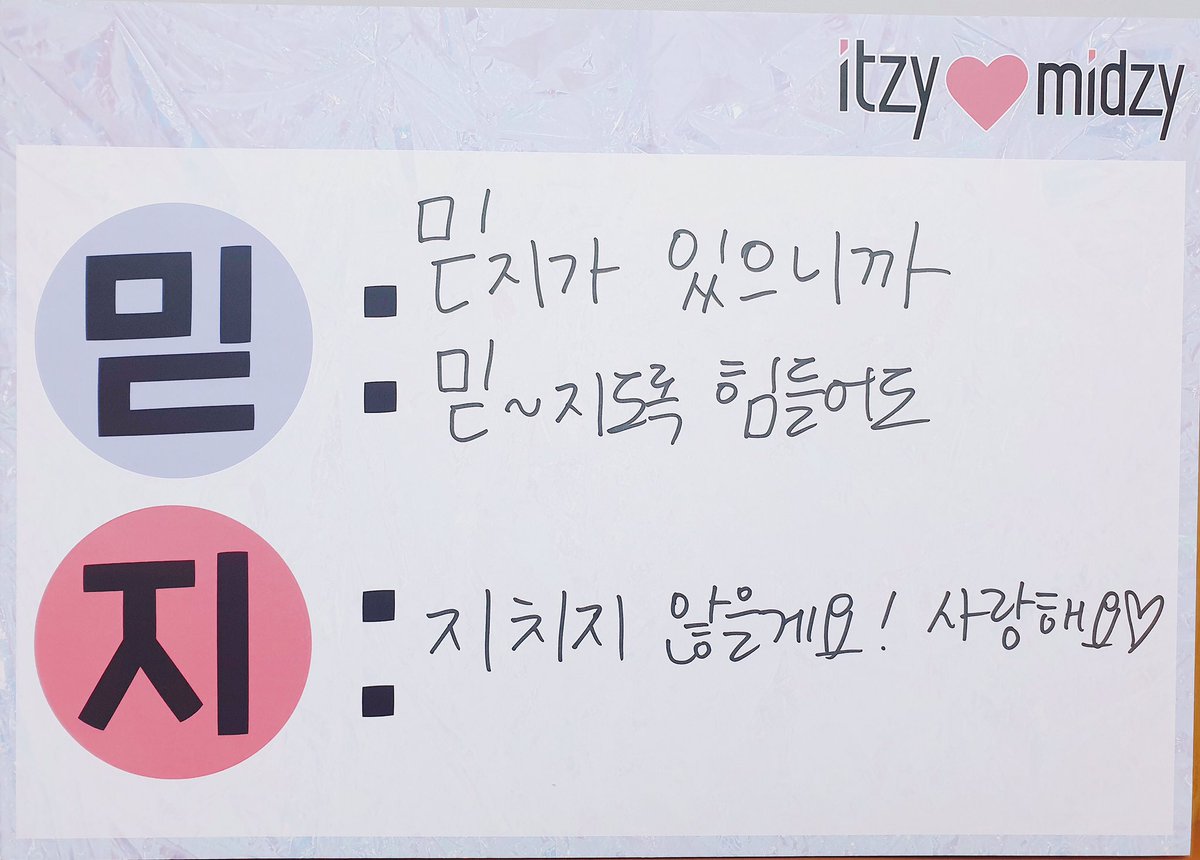 itzy♥midzy
믿 : 믿지가 있으니까
믿~지도록 힘들어도
지 : 지치지 않을게요! 사랑해요♡